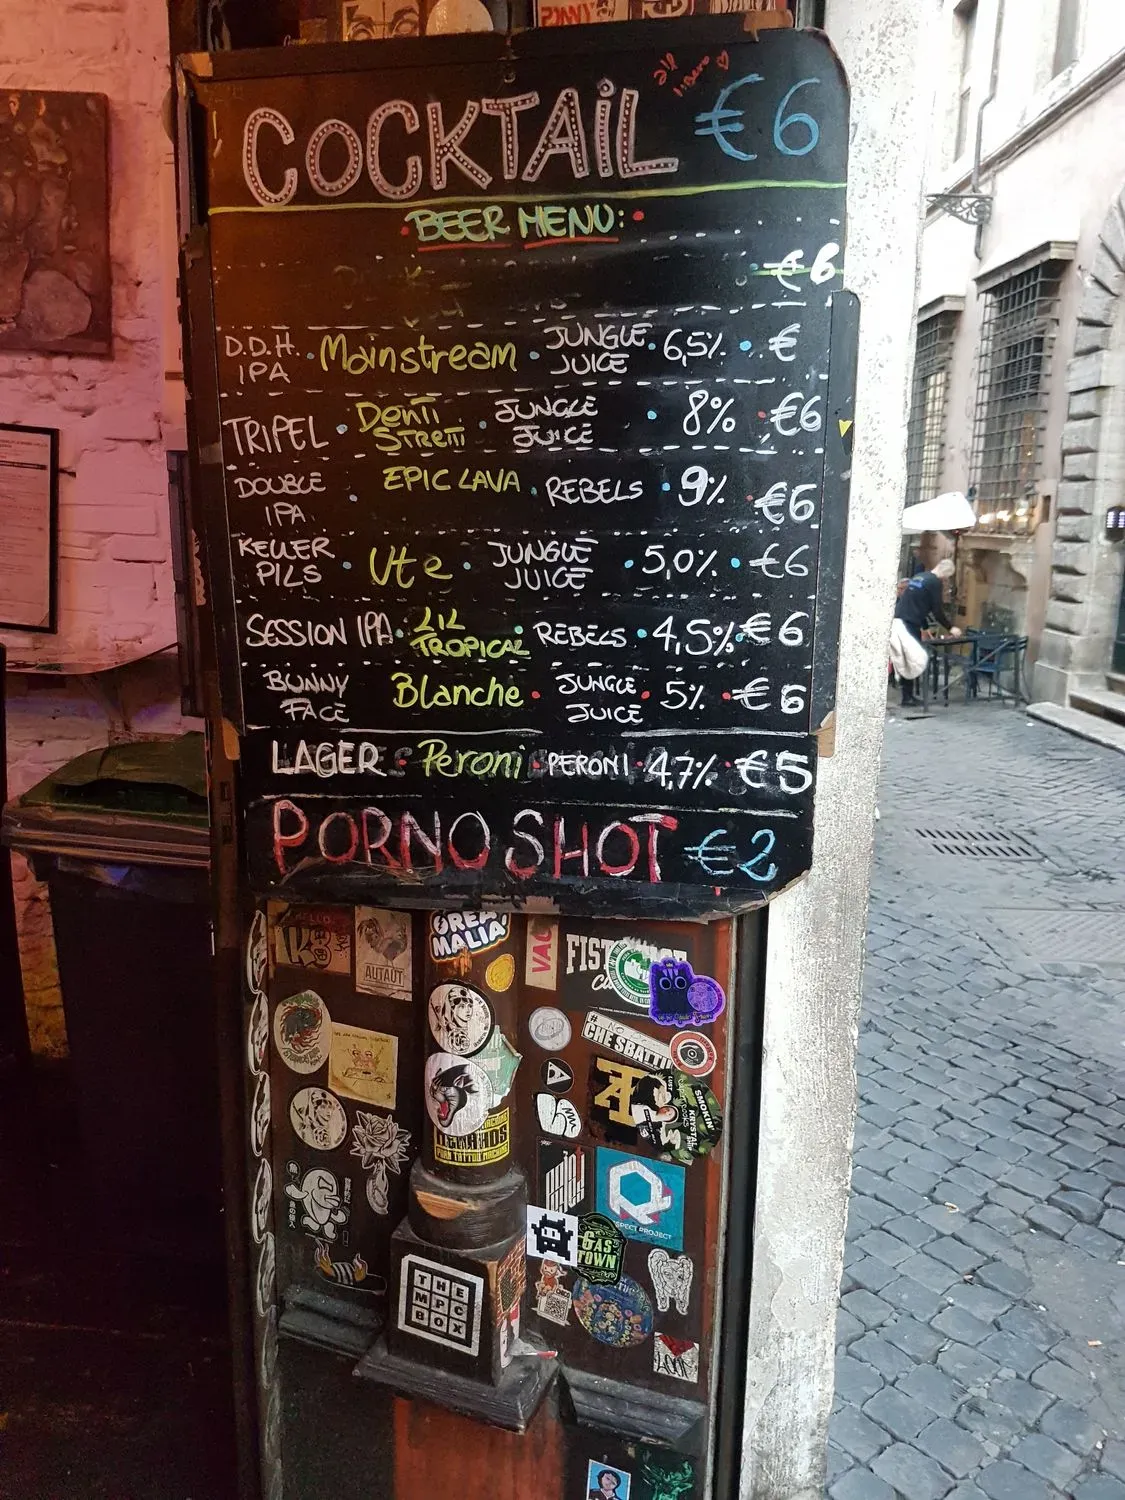 COCKTAIL €6
BEER MENU:
€6
D.D.H. IPA • Mainstream • JUNGLE JUICE • 6,5% • €
TRIPEL • Denti Stretti • JUNGLE JUICE • 8% • €6
DOUBLE IPA • EPIC LAVA • REBELS • 9% • €6
KELLER PILS • Ute • JUNGLE JUICE • 5,0% • €6
SESSION IPA • LIL TROPICAL • REBELS • 4,5% • €6
BUNNY FACE Blanche • JUNGLE JUICE • 5% • €6
LAGER • Peroni • PERONI • 4,7% • €5
PORNO SHOT €2
GREAT MALIA
HELLO
AUTAUT
VAC
FIST
# NO
CHE SBATTI
SMOKIN'
KRYSTAL
TATTOO MACHINE
SPECT PROJECT
GAS TOWN
THE
MPC
BOX